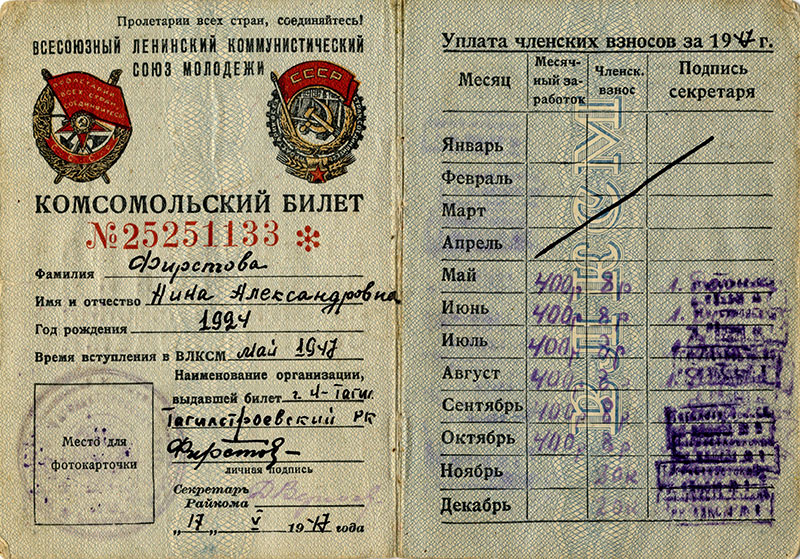 Пролетарии всех стран, соединяйтесь!
ВСЕСОЮЗНЫЙ ЛЕНИНСКИЙ КОММУНИСТИЧЕСКИЙ
СОЮЗ МОЛОДЕЖИ
ПРОЛЕТАРИИ
ВСЕХ СТРАН,
СОЕДИНЯЙТЕСЬ!
СССР
СССР
КОМСОМОЛЬСКИЙ БИЛЕТ
№25251133 *
Фамилия Фирстова
Имя и отчество Нина Александровна
Год рождения 1924
Время вступления в ВЛКСМ май 1947
Наименование организации,
выдавшей билет г. Н-Тагил
Тагилстроевский РК
Фирстов
личная подпись
Место для
фотокарточки
Секретарь
Райкома
"17" V 1947 года
Уплата членских взносов за 1947 г.
Месяц Месяч-ный за-работок Членск. взнос Подпись секретаря
ВЛКСМ
Январь
Февраль
Март
Апрель
Май 400р 8р
Июнь 400р 8р
Июль 400р 8р
Август 400р 8
Сентябрь 400р 8р
Октябрь 400р 8р
Ноябрь 20к
Декабрь 20к